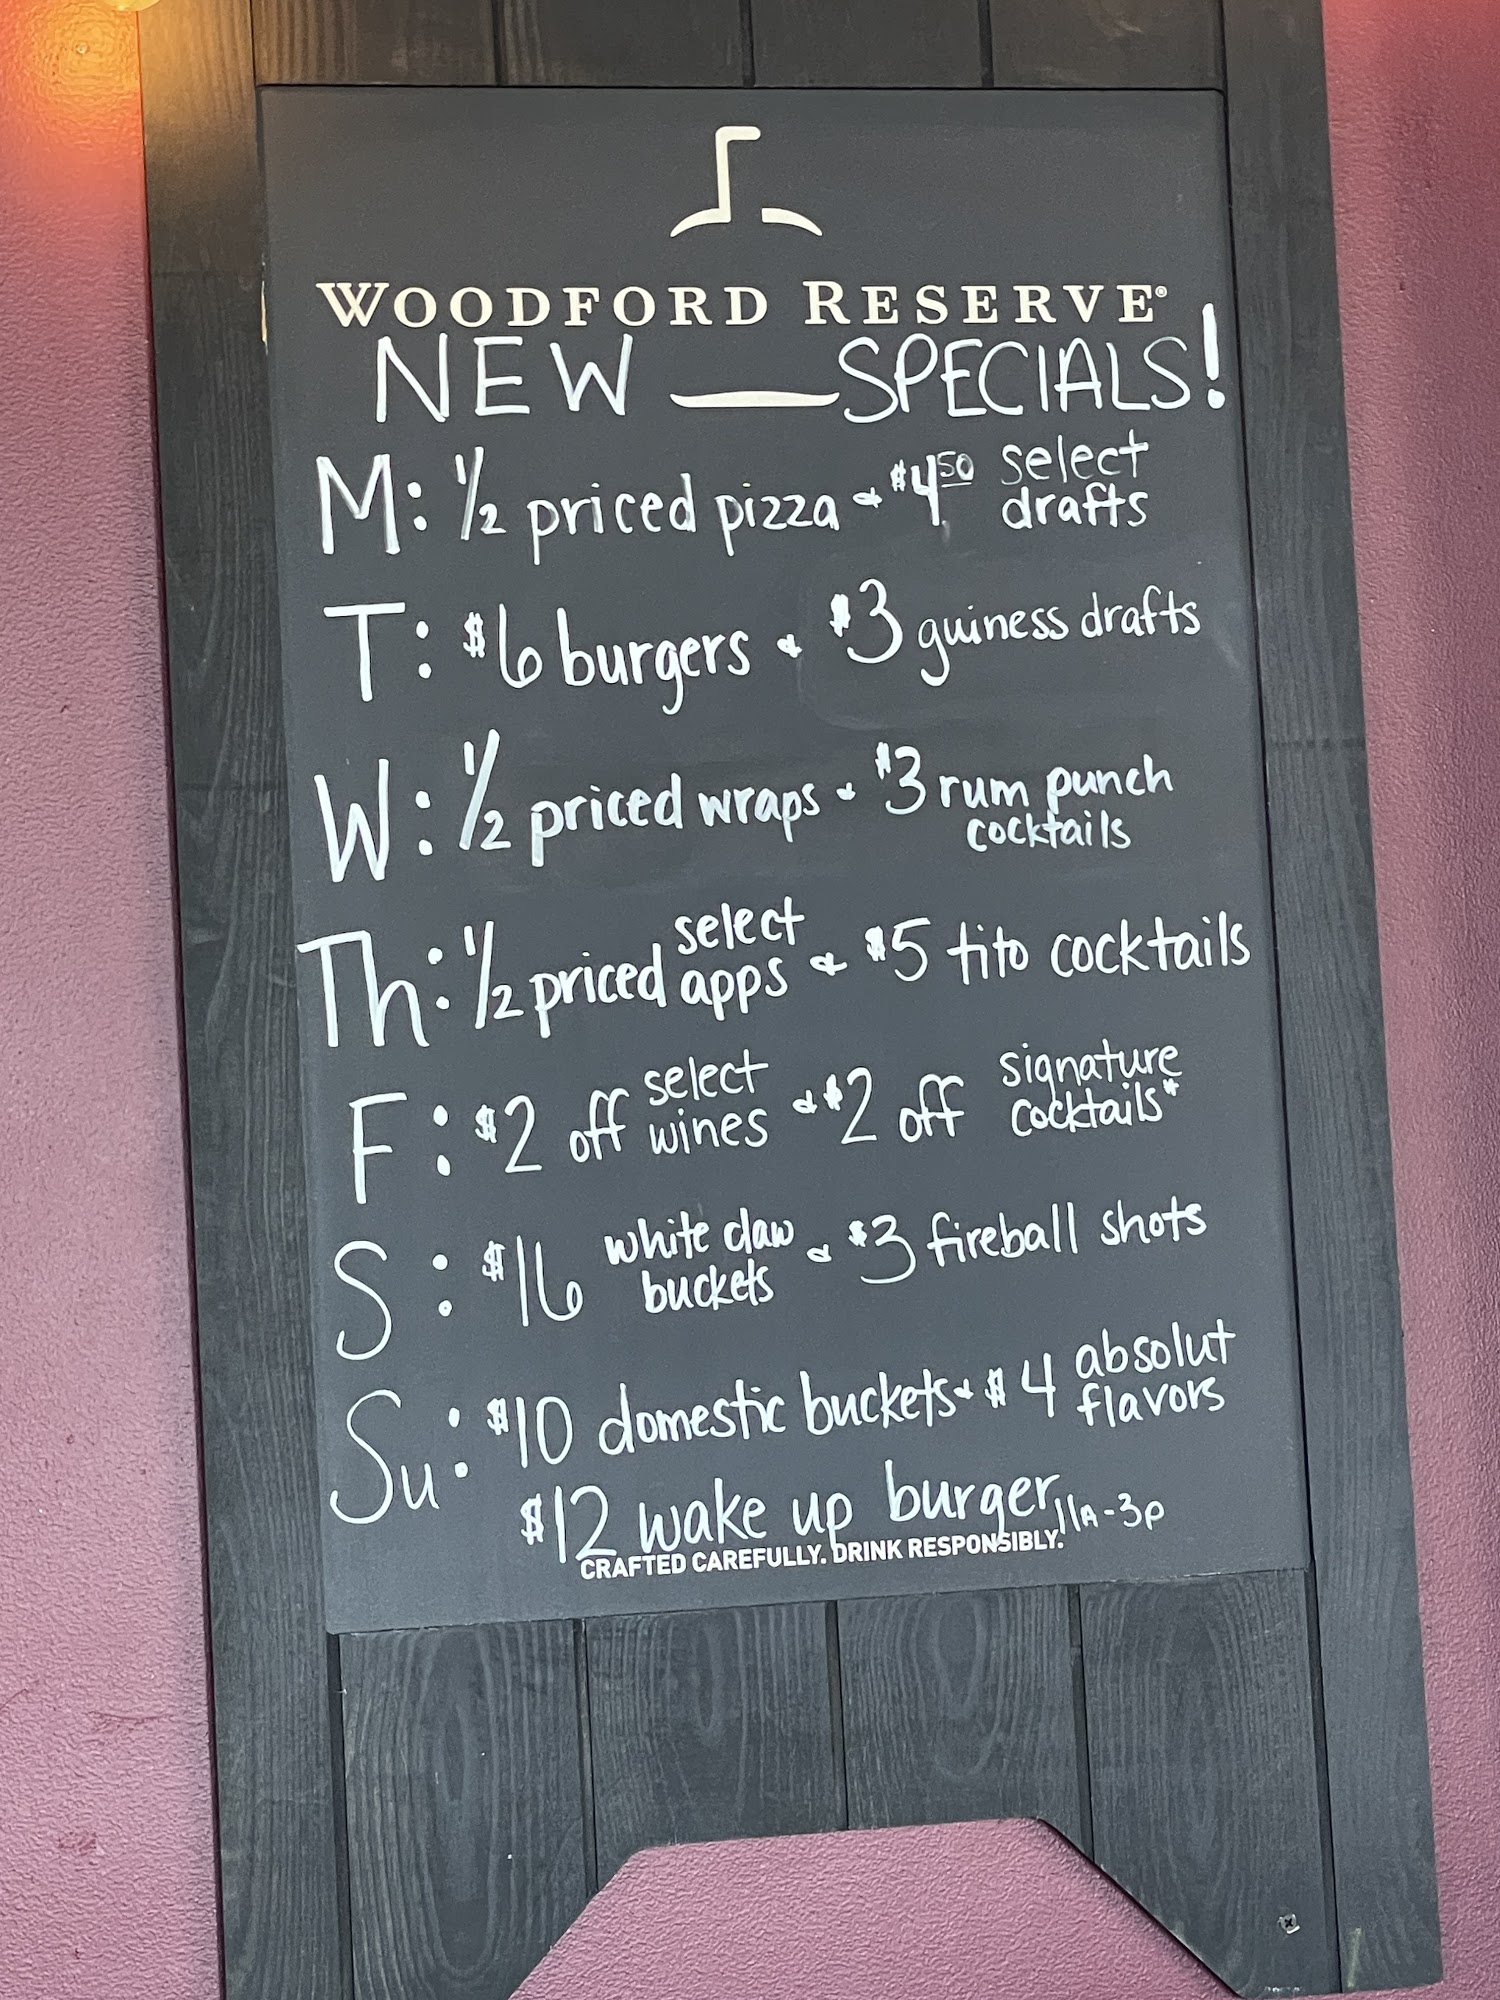 WOODFORD RESERVE®
NEW SPECIALS!
M: 1/2 priced pizza & $4.50 select drafts
T: $6 burgers & $3 guiness drafts
W: 1/2 priced wraps & $3 rum punch cocktails
Th: 1/2 priced select apps & $5 tito cocktails
F: $2 off select wines & $2 off signature cocktails*
S: $16 white claw buckets & $3 fireball shots
Su: $10 domestic buckets & $4 absolut flavors
$12 wake up burger 11A-3p
CRAFTED CAREFULLY. DRINK RESPONSIBLY.